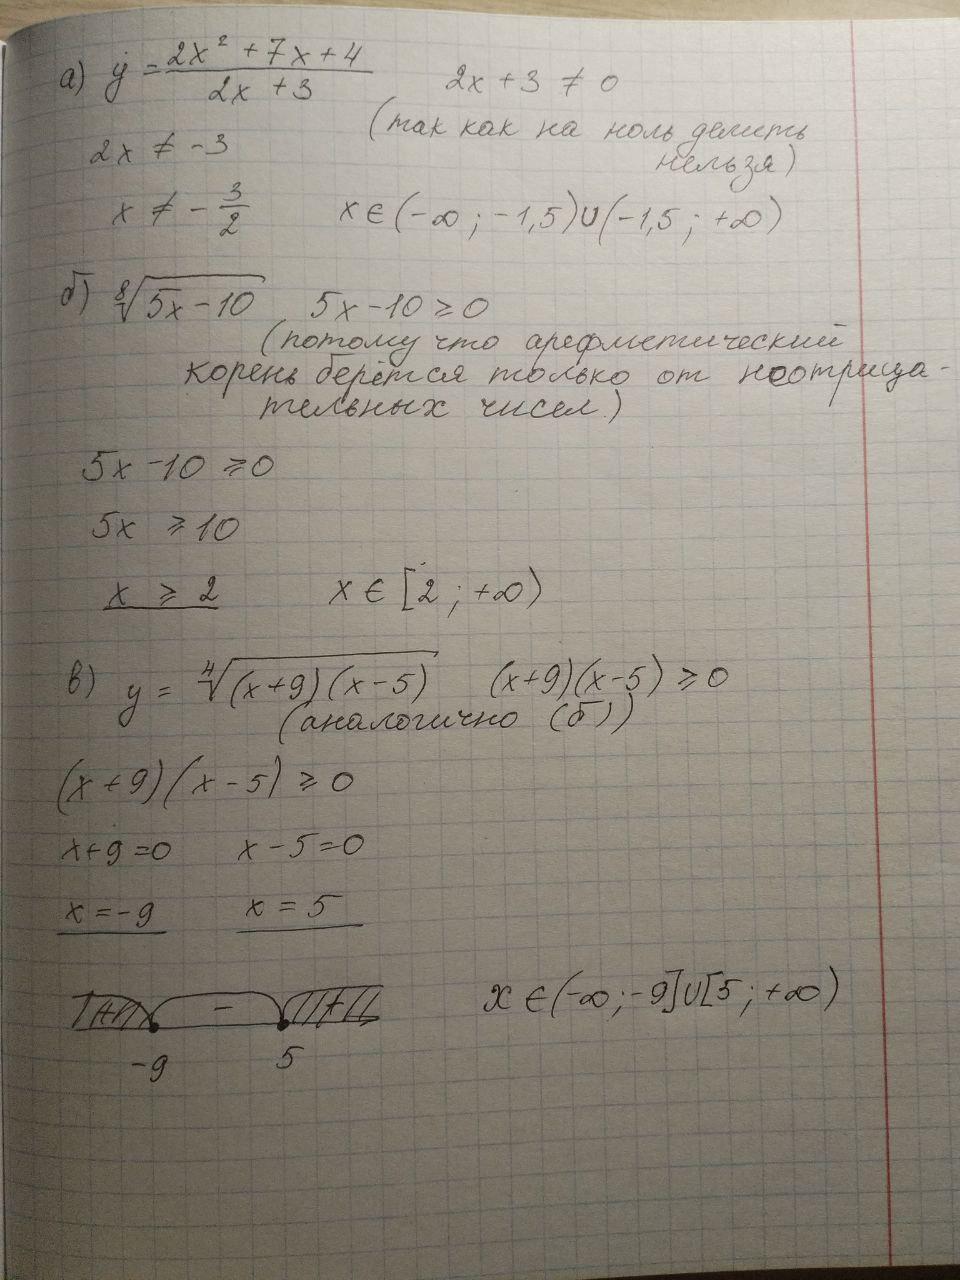 а) y = (2x² + 7x + 4)/(2x + 3) 2x + 3 ≠ 0
(так как на ноль делить
2x ≠ -3 нельзя)
x ≠ -3/2 x ∈ (-∞ ; -1,5)∪(-1,5 ; +∞)
б) ⁸√(5x - 10) 5x - 10 ≥ 0
(потому что арефметический
корень берётся только от неотрица-
тельных чисел)
5x - 10 ≥ 0
5x ≥ 10
x ≥ 2 x ∈ [2 ; +∞)
в) y = ⁴√((x+9)(x-5)) (x+9)(x-5) ≥ 0
(аналогично (б))
(x+9)(x-5) ≥ 0
x+9=0 x-5=0
x=-9 x=5
+ - +
-9 5 x ∈ (-∞ ; -9]∪[5 ; +∞)